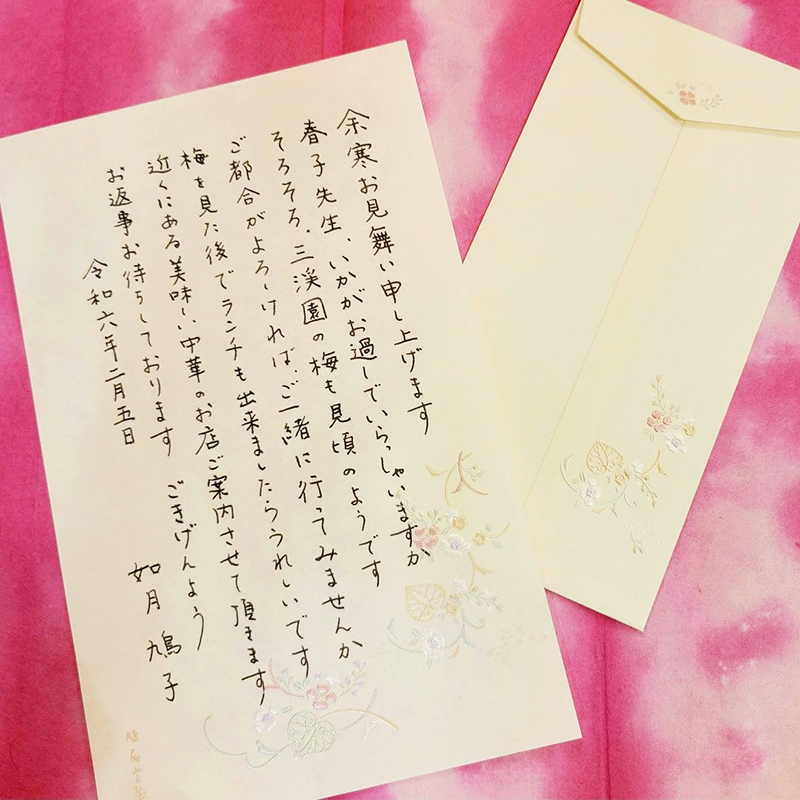 余寒お見舞い申し上げます
春子先生、いかがお過しでいらっしゃいますか
そろそろ、三渓園の梅も見頃のようです
ご都合がよろしければ、ご一緒に行ってみませんか
梅を見た後でランチも出来ましたらうれしいです
近くにある美味しい中華のお店ご案内させて頂きます
お返事お待ちしております　ごきげんよう
令和六年二月五日
如月 鳩子
鳩居堂製